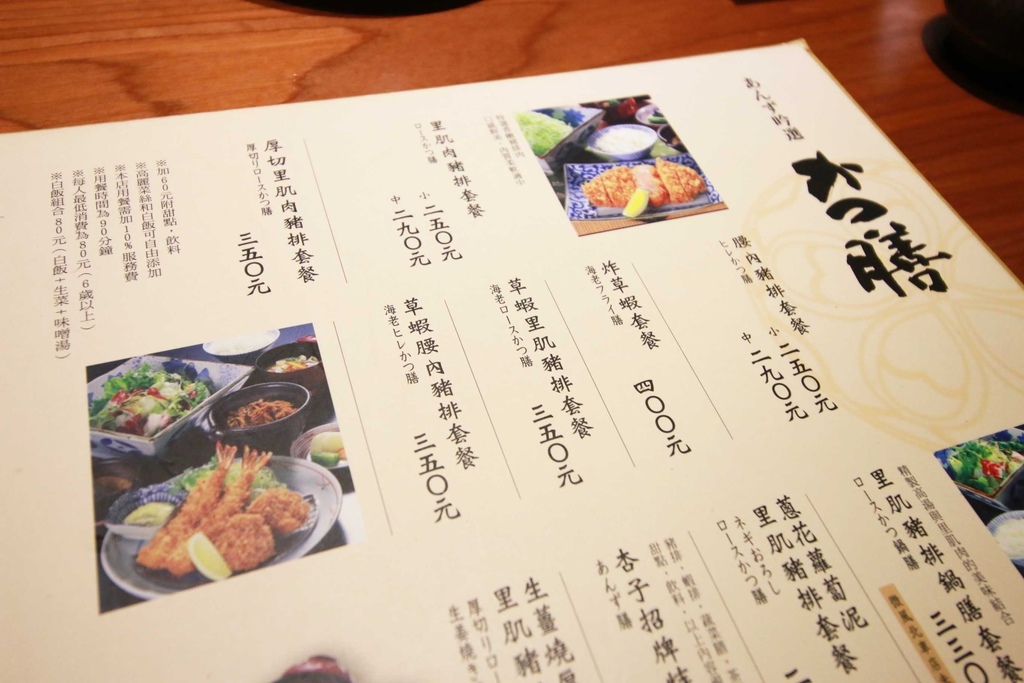 あんず吟選
かつ膳
腰內豬排套餐
ヒレかつ膳
小 二五〇元
中 二九〇元
炸草蝦套餐
海老フライ膳
四〇〇元
草蝦里肌豬排套餐
海老ロースかつ膳
三五〇元
草蝦腰內豬排套餐
海老ヒレかつ膳
三五〇元
里肌肉豬排套餐
ロースかつ膳
小 二五〇元
中 二九〇元
厚切里肌肉豬排套餐
厚切りロースかつ膳
三五〇元
※加60元附甜點,飲料
※高麗菜絲和白飯可自由添加
※本店用餐需加10%服務費
※用餐時間為90分鐘
※每人最低消費為80元(6歲以上)
※白飯組合80元(白飯+生菜+味噌湯)
精製高湯與里肌肉的美味結合
里肌豬排鍋膳套餐
ロースかつ鍋膳
三三〇
蔥花蘿蔔泥
里肌豬排套餐
ネギおろし
ロースかつ膳
豬排,蝦排,蔬菜膳,茶
甜點,飲料,以上內容
杏子招牌特
あんず膳
生薑燒厚
里肌豬
生姜焼き
厚切りロー